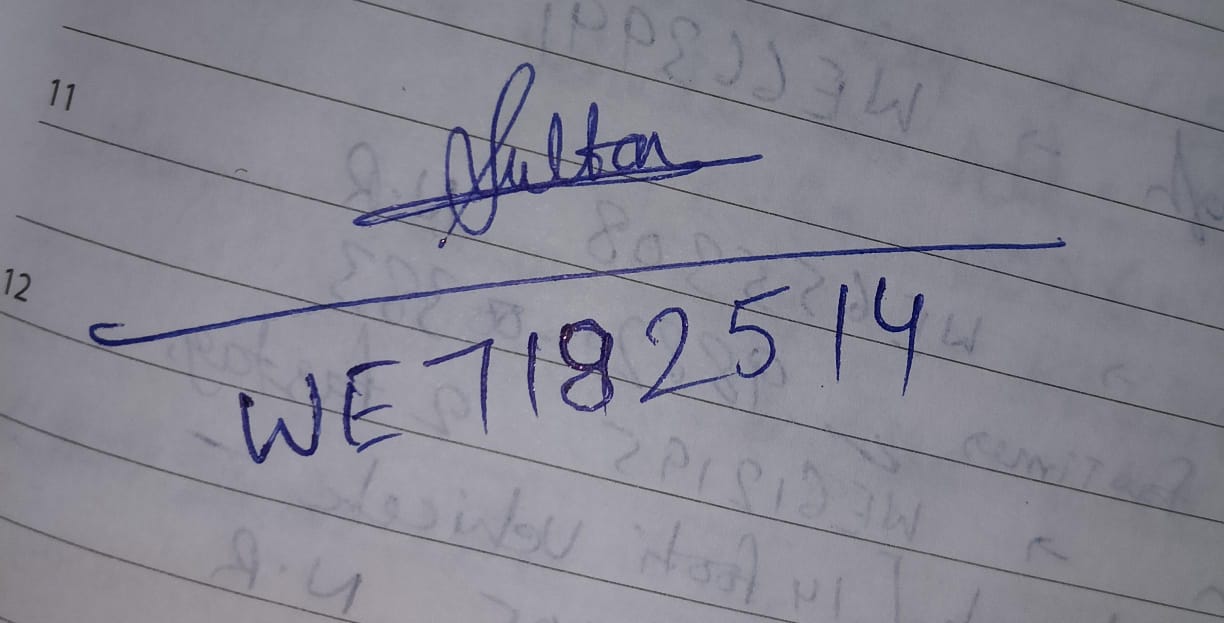 11
Sultan
12
WE7182514